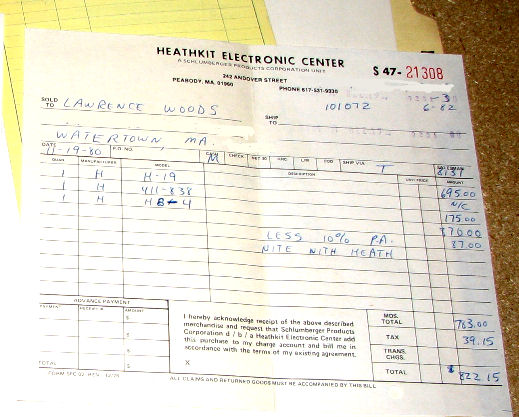 HEATHKIT ELECTRONIC CENTER
A SCHLUMBERGER PRODUCTS CORPORATION UNIT
242 ANDOVER STREET
PEABODY, MA. 01960
PHONE 617-531-9330
S 47- 21308
SOLD TO LAWRENCE WOODS
101072
6-82
SHIP TO
WATERTOWN MA
DATE 11-19-80
P.O. NO.
CASH M CHECK NET 30 COD SHIP VIA T SALESMAN
QUAN. MANUFACTURER MODEL DESCRIPTION UNIT PRICE AMOUNT
1 H H-19 695.00
1 H 411-838 N/C
1 H H8-4 175.00
LESS 10% P.A. 870.00
NITE NITH HEATH 87.00
ADVANCE PAYMENT
PAYMENT RECEIPT # AMOUNT
$
$
$
$
TOTAL $
I hereby acknowledge receipt of the above described
merchandise and request that Schlumberger Products
Corporation d / b / a Heathkit Electronic Center add
this purchase to my charge account and bill me in
accordance with the terms of my existing agreement.
X
MDS. TOTAL 783.00
TAX 39.15
TRANS. CHGS.
TOTAL $822.15
ALL CLAIMS AND RETURNED GOODS MUST BE ACCOMPANIED BY THIS BILL